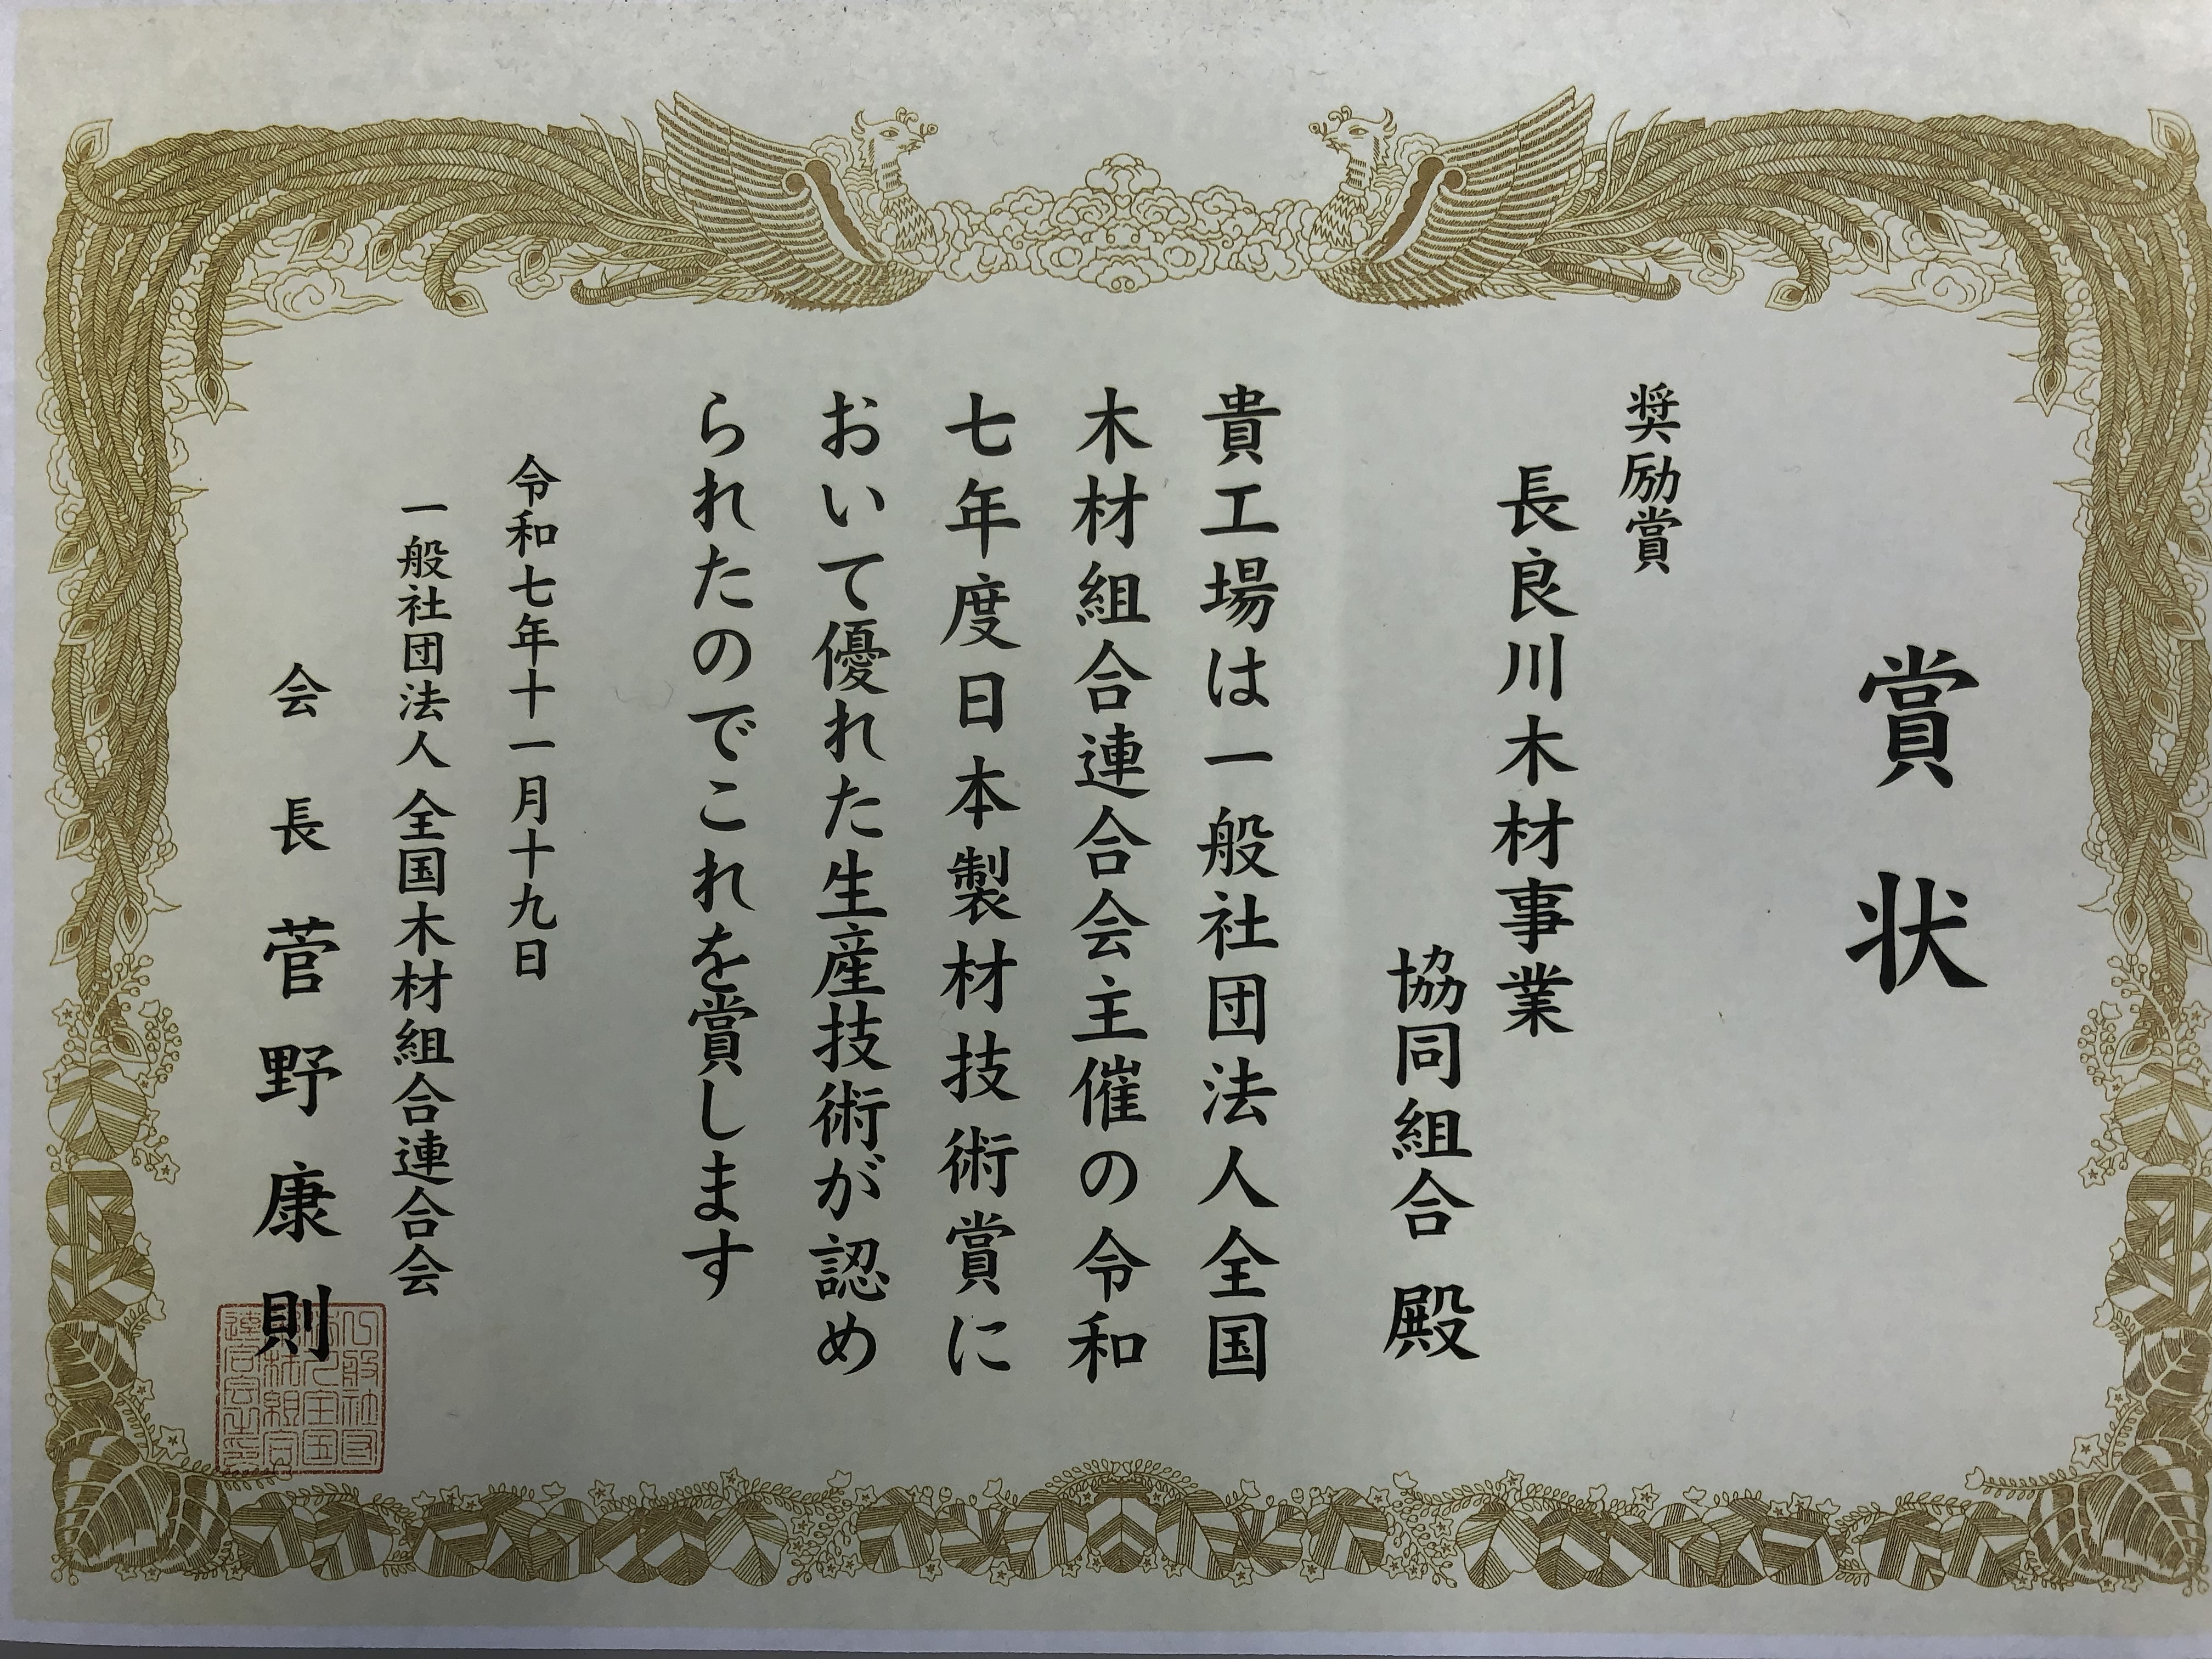 賞状
奨励賞
長良川木材事業
協同組合 殿
貴工場は一般社団法人全国
木材組合連合会主催の令和
七年度日本製材技術賞に
おいて優れた生産技術が認め
られたのでこれを賞します
令和七年十一月十九日
一般社団法人 全国木材組合連合会
会長 菅野康則